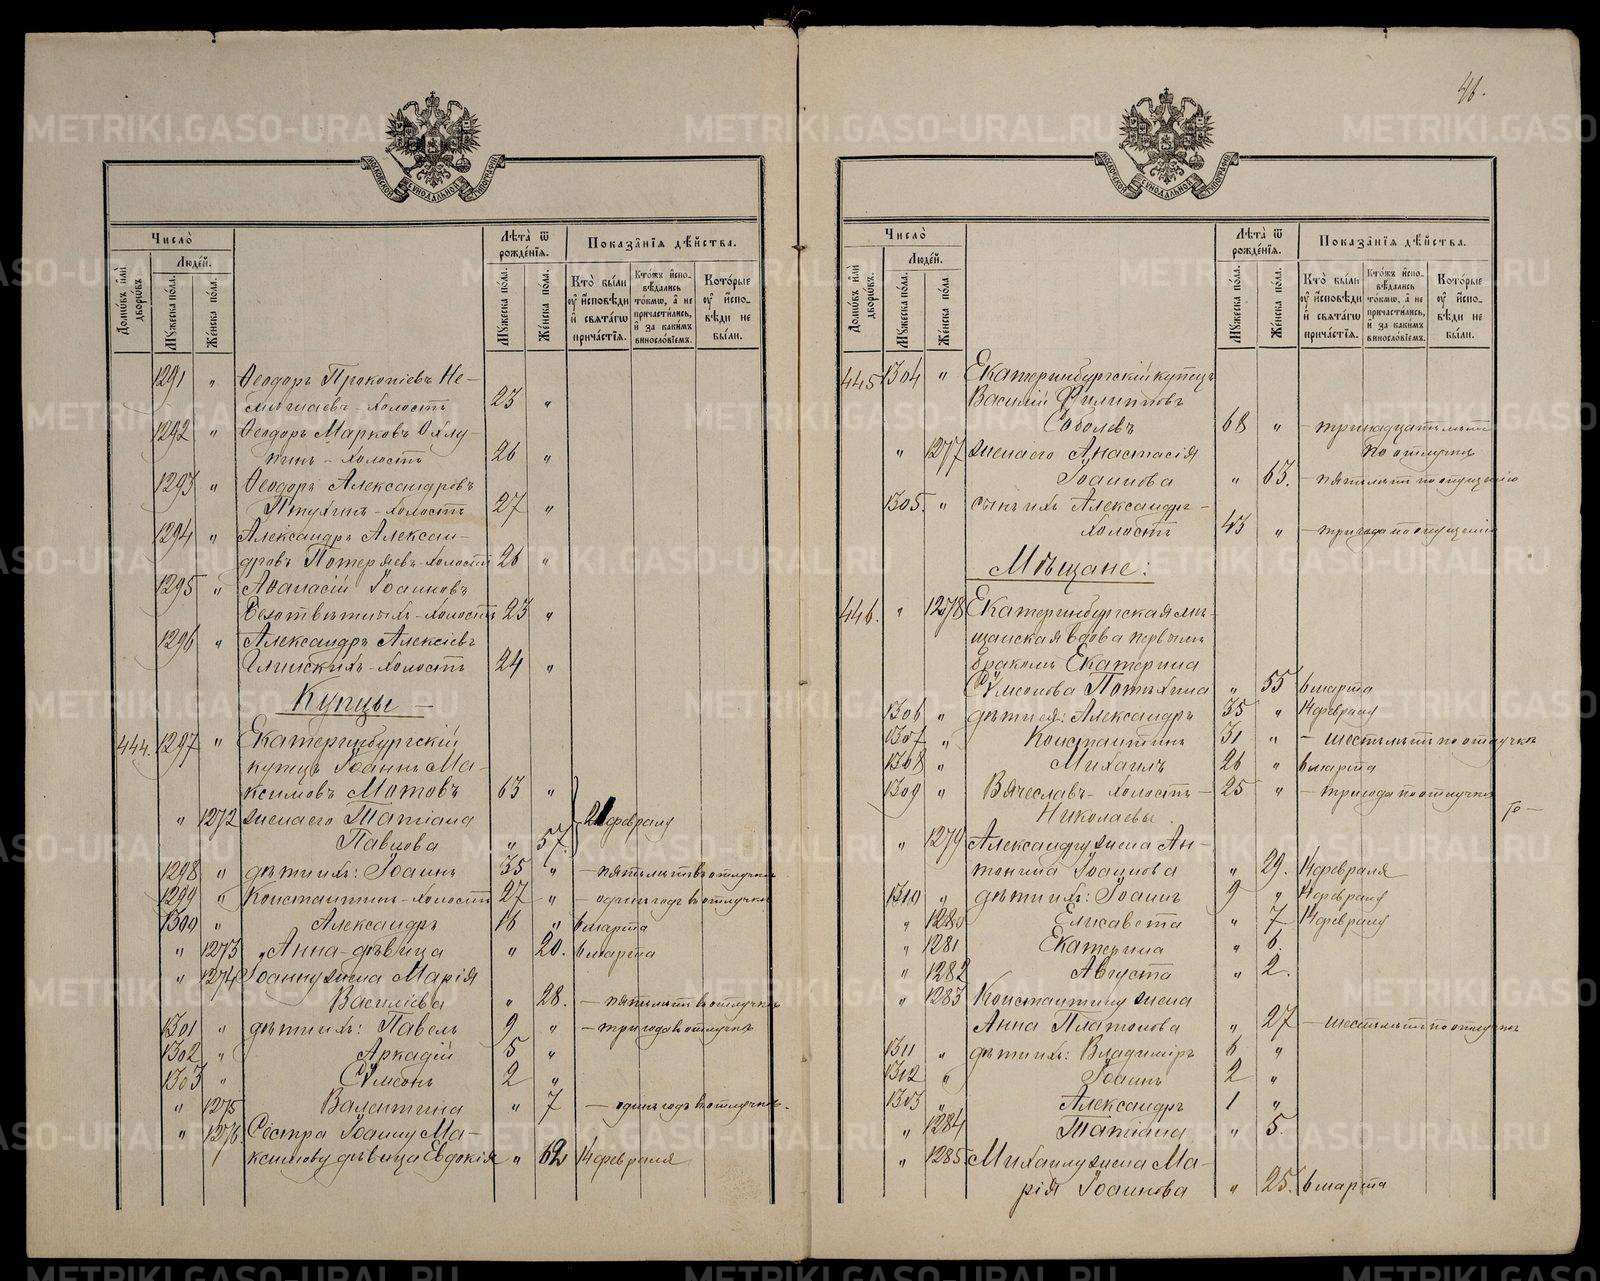 46.
МОСКОВСКОЙ СѴНОДАЛЬНОЙ ТИПОГРАФІИ
Число̀
Людей.
Домѡвъ илѝ дворѡвъ.
Мꙋжеска по́ла.
Же́нска по́ла.
Лѣта̀ ѿ рожде́нїѧ.
Мꙋжеска по́ла.
Же́нска по́ла.
Показа̑нїѧ дѣ́йства.
Кто̀ бы́ли ᲂу҆ и҆сповѣди и҆ свѧта́гѡ прича́стїѧ.
Кто́жъ и҆спо-
вѣдались то́кмѡ, а҆ не причасти́лись, и҆ за каки́мъ винослові́емъ.
Кото́рые ᲂу҆ и҆спо-
вѣди не бы́ли.
1291 " Ѳеодоръ Прокопіевъ Не-
холостъ 23 "
1292 " Ѳеодоръ Марковъ Охлу-
пинъ - холостъ 26 "
1293 " Ѳеодоръ Александровъ
Птухинъ - холостъ 27 "
1294 " Александръ Алексан-
дровъ Потеряевъ - холостъ 26 "
1295 " Аѳанасій Іоанновъ
Безотвѣтныхъ - холостъ 23 "
1296 " Александръ Алексіевъ
Глинскихъ - холостъ 24 "
Купцы -
444. 1297 " Екатеринбургскій
купецъ Іоаннъ Ма-
ксимовъ Мотовъ 63 "
" 1272 жена его Татіана 21 февраля
Павлова " 57.
1298 " дѣти ихъ: Іоаннъ 35 " - пять лѣтъ въ отлучкѣ
1299 " Константинъ - холостъ 27 " - одинъ годъ въ отлучкѣ
1300 " Александръ 16 " 6 марта
" 1273 " Анна - дѣвица " 20. 6 марта
" 1274 Іоанну жена Марія
Василіева " 28. - пять лѣтъ въ отлучкѣ
1301 " дѣти ихъ: Павелъ 9 " - три года въ отлучкѣ
1302 " Аркадій 5 "
1303 " Сѵмеонъ 2 "
" 1275 Валентина " 7 - одинъ годъ въ отлучкѣ.
" 1276 Сестра Іоанну Ма-
ксимову дѣвица Евдокія " 62 14 февраля
Число̀
Людей.
Домѡвъ илѝ дворѡвъ.
Мꙋжеска по́ла.
Же́нска по́ла
Лѣта̀ ѿ рожде́нїѧ.
Мꙋжеска по́ла.
Же́нска по́ла.
Показа̑нїѧ дѣ́йства.
Кто̀ бы́ли ᲂу҆ и҆сповѣди и҆ свѧта́гѡ прича́стїѧ.
Кто́жъ и҆спо-
вѣдались то́кмѡ, а҆ не причасти́лись, и҆ за каки́мъ винослові́емъ.
Кото́рые ᲂу҆ и҆спо-
вѣди не бы́ли.
445 1304 " Екатеринбургскій купецъ
Василій Филипповъ
Соболевъ 68 " - тринадцать лѣтъ
по отлучкѣ
" 1277 жена его Анастасія
Іоаннова " 63. - пять лѣтъ по опущенію
1305. " сынъ ихъ Александръ -
холостъ 43 " - три года по опущенію
Мѣщане:
446. " 1278 Екатеринбургская мѣ-
щанская вдова первымъ
бракомъ Екатерина
Сѵмеонова Потыхина " 55 6 марта
1306 " дѣти ея: Александръ 35 " 14 февраля
1307 " Константинъ 31 " - шесть лѣтъ по отлучкѣ
1308 " Михаилъ 26 " 6 марта
1309 " Вячеславъ - холостъ - 25 " - три года по отлучкѣ
Николаевы.
" 1279 Александру жена Ан-
тонина Іоаннова " 29. 14 февраля
1310 " дѣти ихъ: Іоаннъ 9 " 14 февраля
" 1280 Елисавета " 7 14 февраля
" 1281 Екатерина " 6.
" 1282 Августа " 2.
" 1283 Константину жена
Анна Платонова " 27 - шесть лѣтъ по отлучкѣ
1311 " дѣти ихъ: Владиміръ 6 "
1312 " Іоаннъ 2 "
1313 " Александръ 1 "
" 1284 Татіана " 5.
" 1285 Михаилу жена Ма-
рія Іоаннова " 25. 6 марта
METRIKI.GASO-URAL.RU